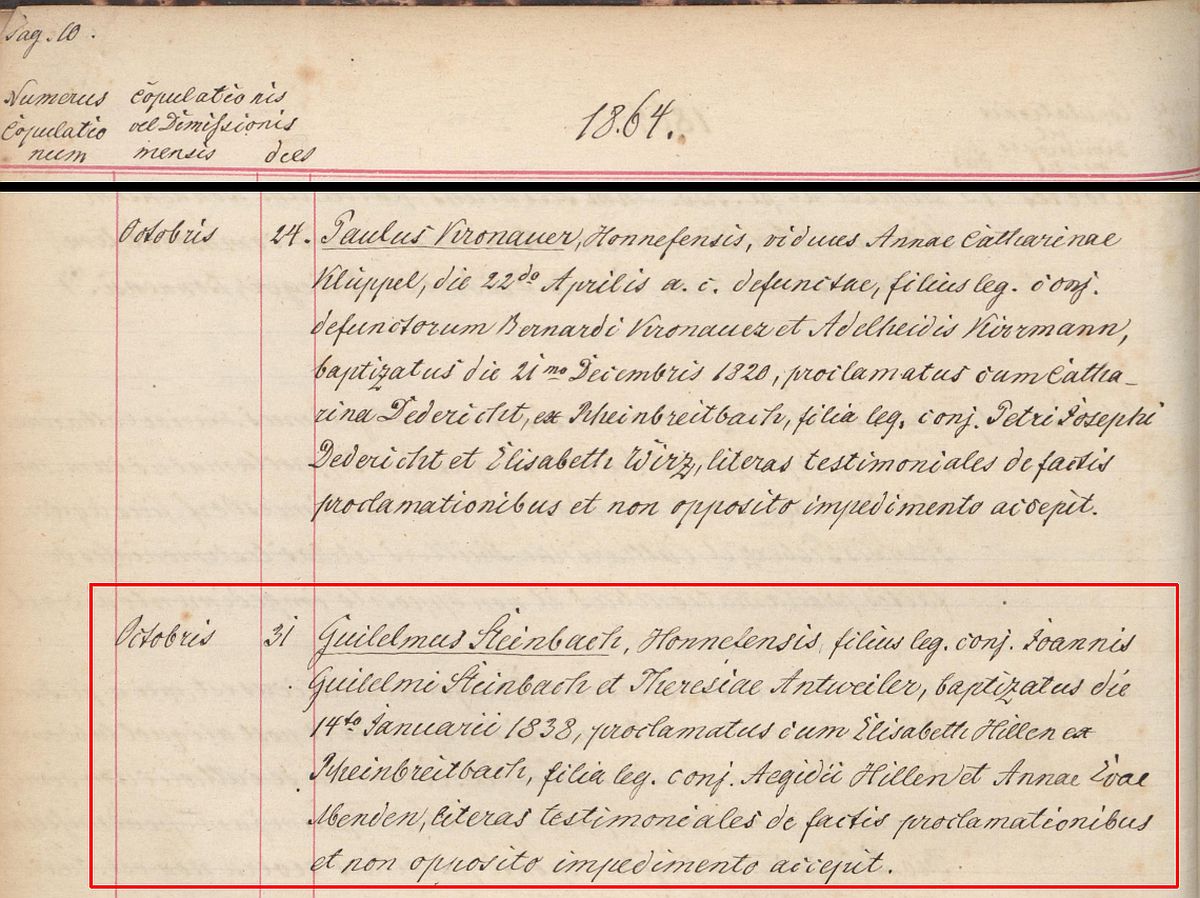 Pag. 10.
Numerus Copulationis
Copulatio vel Dimissionis 1864.
num mensis dies
Octobris 24. Paulus Kronauer, Honnefensis, viduus Annae Catharinae
Klüppel, die 22do Aprilis a. c. defunctae, filius leg. conj.
defunctorum Bernardi Kronauer et Adelheidis Kirrmann,
baptizatus die 21mo Decembris 1820, proclamatus cum Catha-
rina Dedericht, ex Rheinbreitbach, filia leg. conj. Petri Josephi
Dedericht et Elisabeth Wirz, literas testimoniales de factis
proclamationibus et non opposito impedimento accepit.
Octobris 31 Guilelmus Steinbach, Honnefensis, filius leg. conj. Joannis
Guilelmi Steinbach et Theresiae Antweiler, baptizatus die
14to Januarii 1838, proclamatus cum Elisabeth Hillen ex
Rheinbreitbach, filia leg. conj. Aegidii Hillen et Annae Evae
Menden, literas testimoniales de factis proclamationibus
et non opposito impedimento accepit.